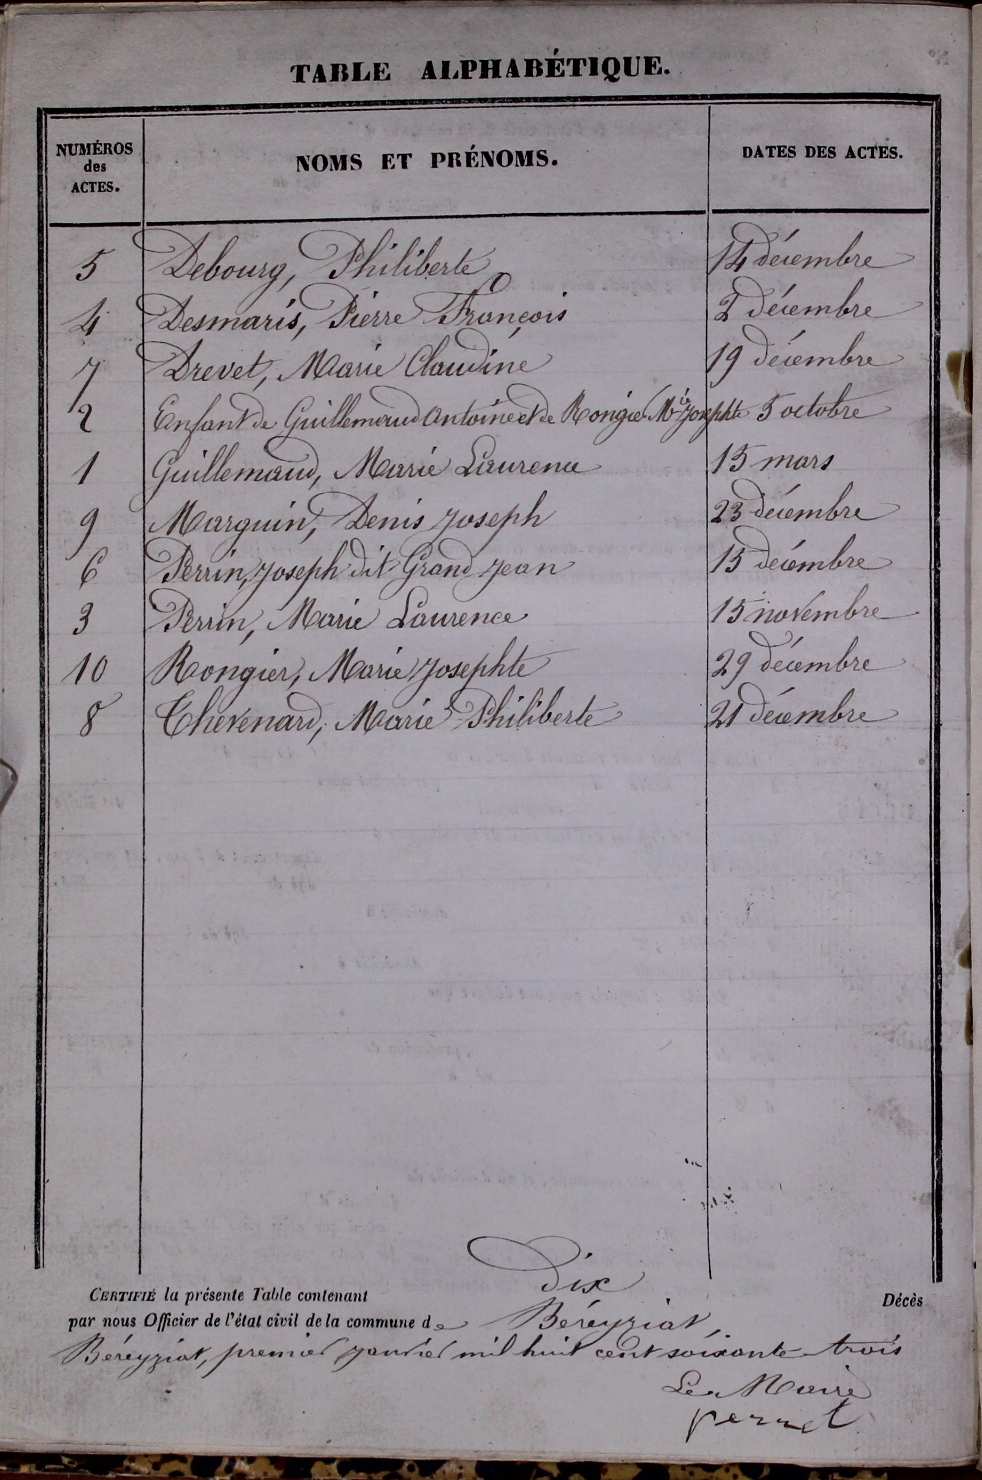 TABLE ALPHABÉTIQUE.
NUMÉROS des ACTES. NOMS ET PRÉNOMS. DATES DES ACTES.
5 Debourg, Philiberte 14 décembre
4 Desmaris, Pierre François 2 décembre
7 Drevet, Marie Claudine 19 décembre
2 Enfant de Guillemaud Antoine et de Rongier Mie Josephte 5 octobre
1 Guillemaud, Marie Laurence 15 mars
9 Marguin, Denis Joseph 23 décembre
6 Perrin, Joseph dit Grand Jean 15 décembre
3 Perrin, Marie Laurence 15 novembre
10 Rongier, Marie Josephte 29 décembre
8 Thevenard, Marie Philiberte 21 décembre
CERTIFIÉ la présente Table contenant Dix Décès
par nous Officier de l'état civil de la commune de Béréyziat,
Béréyziat, premier janvier mil huit cent soixante trois
Le Maire
perret